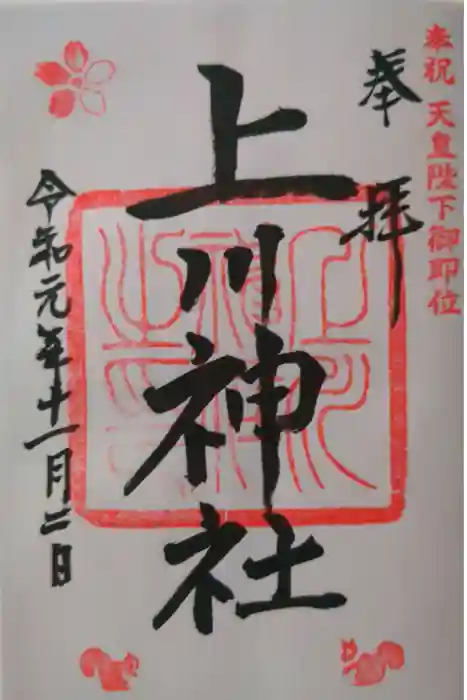 奉祝 天皇陛下御即位
奉拝
上川神社
令和元年十一月二日